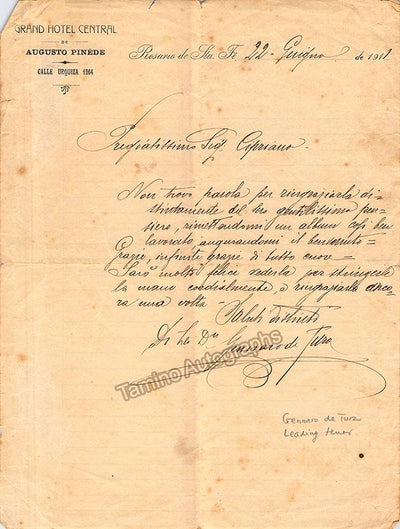 GRAND HOTEL CENTRAL
DE
AUGUSTO PINÈDE
CALLE URQUIZA 1264
Rosario de Sta. Fé 22 Giugno de 1911
Pregiatissimo Sig Cypriano.
Non trovo parola per ringraziarla di=
stintamente del Suo gentilissimo pen=
siero, rimettendomi un album così ben
lavorato, augurandomi il benvenuto=
Grazie, infinite grazie di tutto cuore=
Sarò molto felice vederla per stringerle
la mano cordialmente, e ringraziarla anco=
ra una volta=
Saluti distinti
Di Lei Dmo
Gennaro de Tura
Tamino Autographs
Gennaro de Tura
Leading tenor